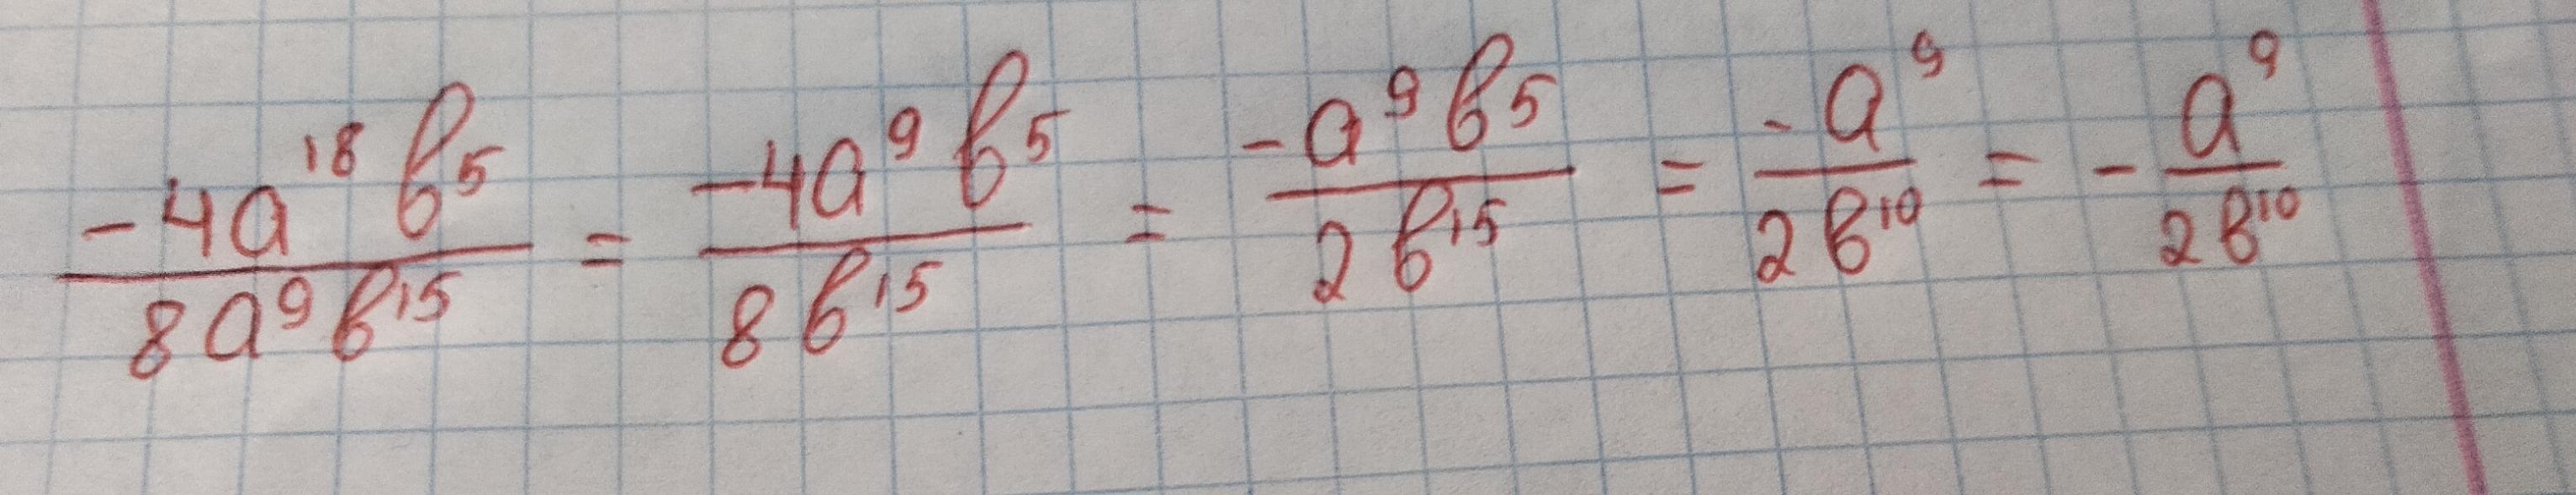 $\frac{-4a^{18}b^5}{8a^9b^{15}} = \frac{-4a^9b^5}{8b^{15}} = \frac{-a^9b^5}{2b^{15}} = \frac{-a^9}{2b^{10}} = -\frac{a^9}{2b^{10}}$